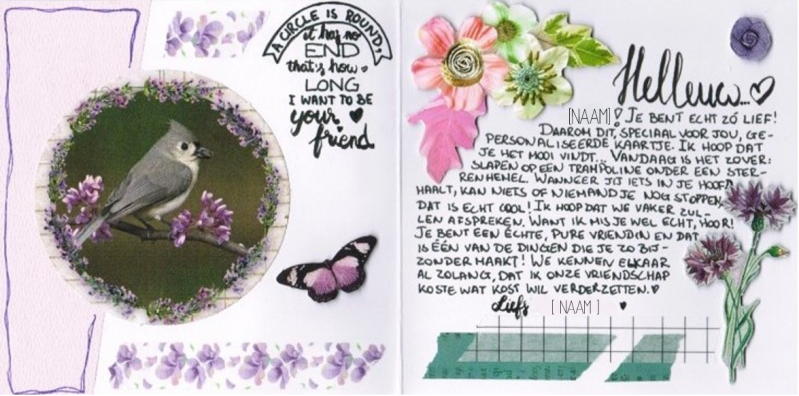 A CIRCLE IS ROUND,
it has no
END
that's how
LONG
I WANT TO BE
your
friend
Helleuw...
[NAAM]! JE BENT ECHT ZÓ LIEF!
DAAROM DIT, SPECIAAL VOOR JOU, GE-
PERSONALISEERDE KAARTJE. IK HOOP DAT
JE HET MOOI VINDT... VANDAAG IS HET ZOVER:
SLAPEN OP EEN TRAMPOLINE ONDER EEN STER-
RENHEMEL. WANNEER JIJ IETS IN JE HOOFD
HAALT, KAN NIETS OF NIEMAND JE NOG STOPPEN,
DAT IS ECHT COOL! IK HOOP DAT WE VAKER ZUL-
LEN AFSPREKEN. WANT IK MIS JE WEL ECHT, HOOR!
JE BENT EEN ÉCHTE, PURE VRIENDIN EN DAT
IS ÉÉN VAN DE DINGEN DIE JE ZO BIJ-
ZONDER MAAKT! WE KENNEN ELKAAR
AL ZOLANG, DAT IK ONZE VRIENDSCHAP
KOSTE WAT KOST WIL VERDERZETTEN.
Liefs [NAAM]